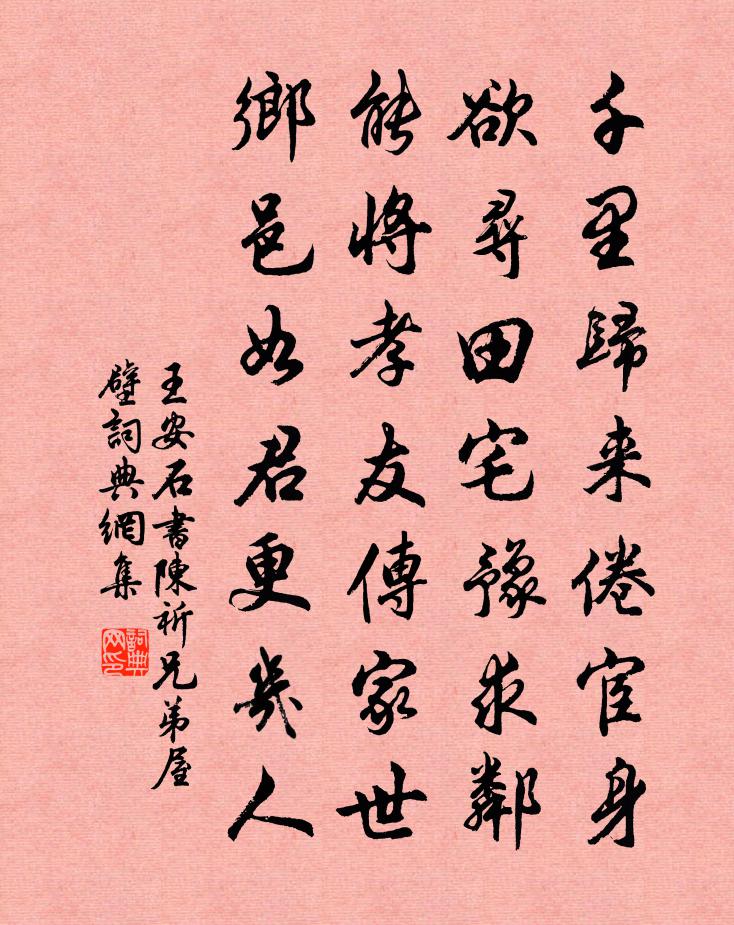 千里歸来倦宦身
欲尋田宅豫求鄰
能將孝友傳家世
鄉邑如君更幾人
王安石書陳祈兄弟屋
壁詞典網集
詞典
网印